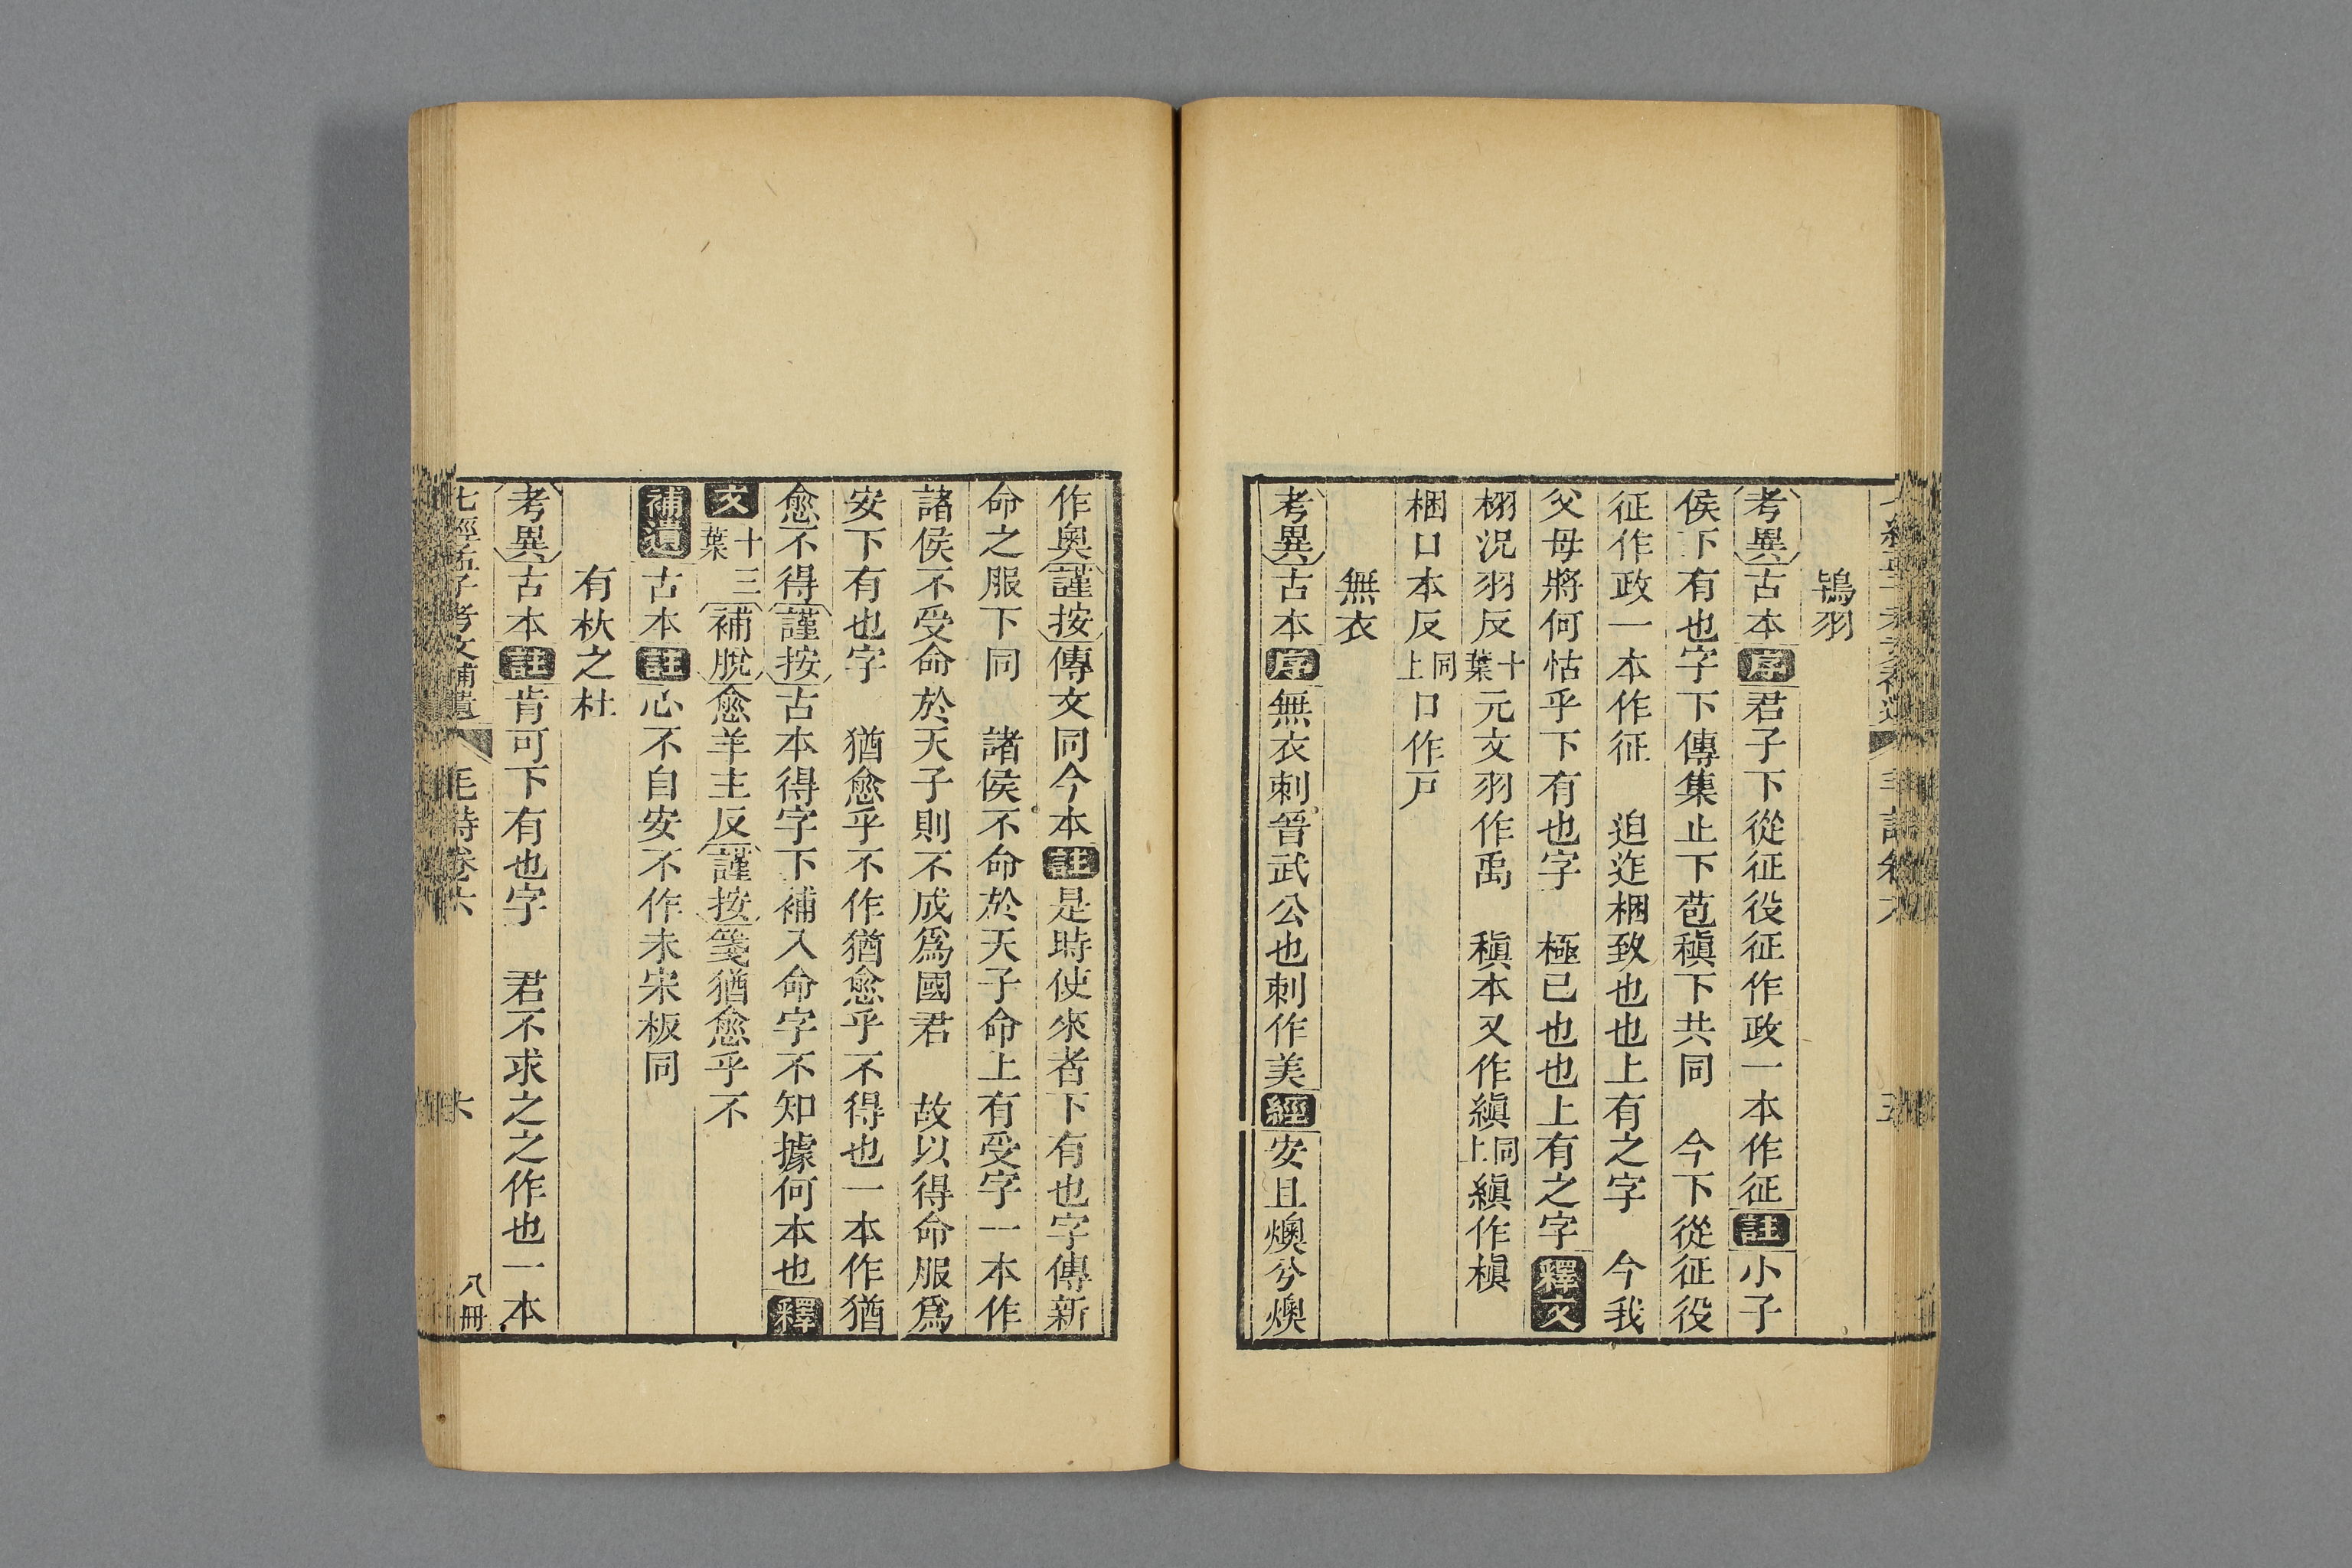 鴇羽
考異古本序君子下從征役征作政一本作征註小子
侯下有也字下傳集止下苞稹下共同　今下從征役
征作政一本作征　迫迮梱致也也上有之字　今我
父母將何怙乎下有也字　極已也也上有之字釋文
栩況羽反十葉元文羽作禹　稹本又作縝同上縝作槇
梱口本反同上口作戸
無衣
考異古本序無衣刺晉武公也刺作美經安且燠兮燠
作奥謹按傳文同今本註是時使來者下有也字傳新
命之服下同　諸侯不命於天子命上有受字一本作
諸侯不受命於天子則不成爲國君　故以得命服爲
安下有也字　猶愈乎不作猶愈乎不得也一本作猶
愈不得謹按古本得字下補入命字不知據何本也釋
文十三葉補脫愈羊主反謹按箋猶愈乎不
補遺古本註心不自安不作未宋板同
有杕之杜
考異古本註肯可下有也字　君不求之之作也一本
七經孟子考文補遺　毛詩卷六　六　八冊